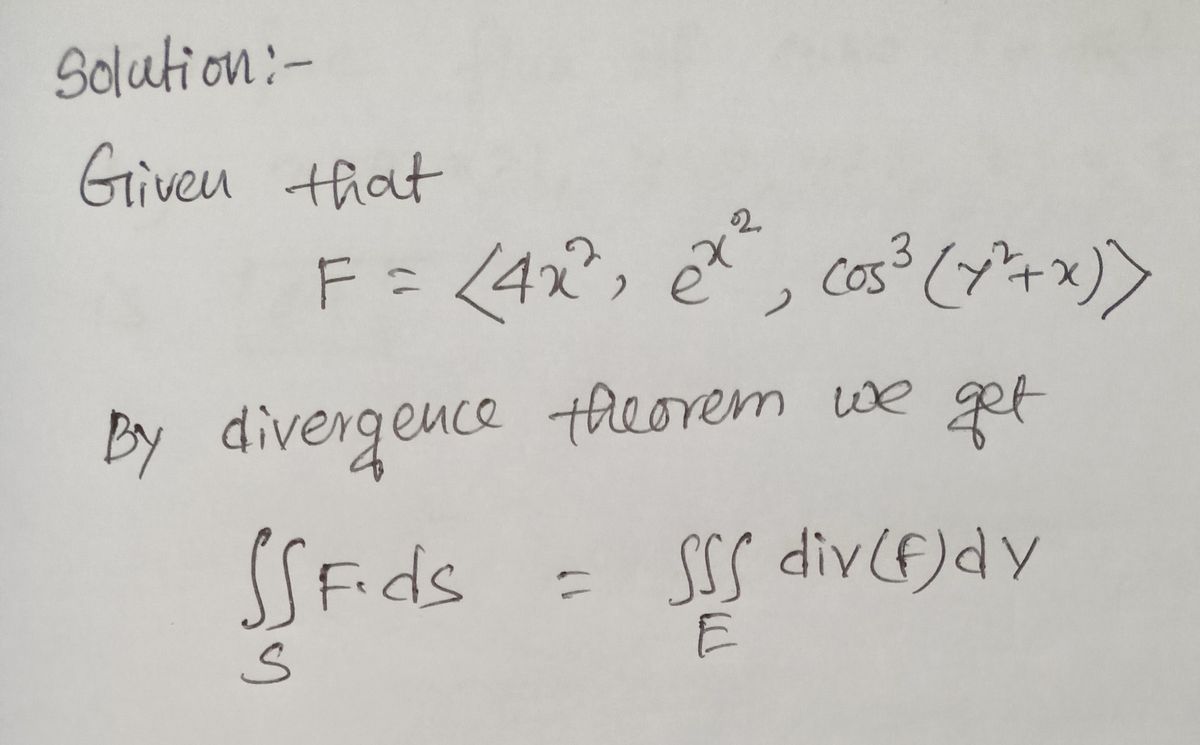 Solution:-
Given that
F = ⟨4x², e^{x²}, cos³(y²+x)⟩
By divergence theorem we get
∬_S F.ds = ∭_E div(F)dv